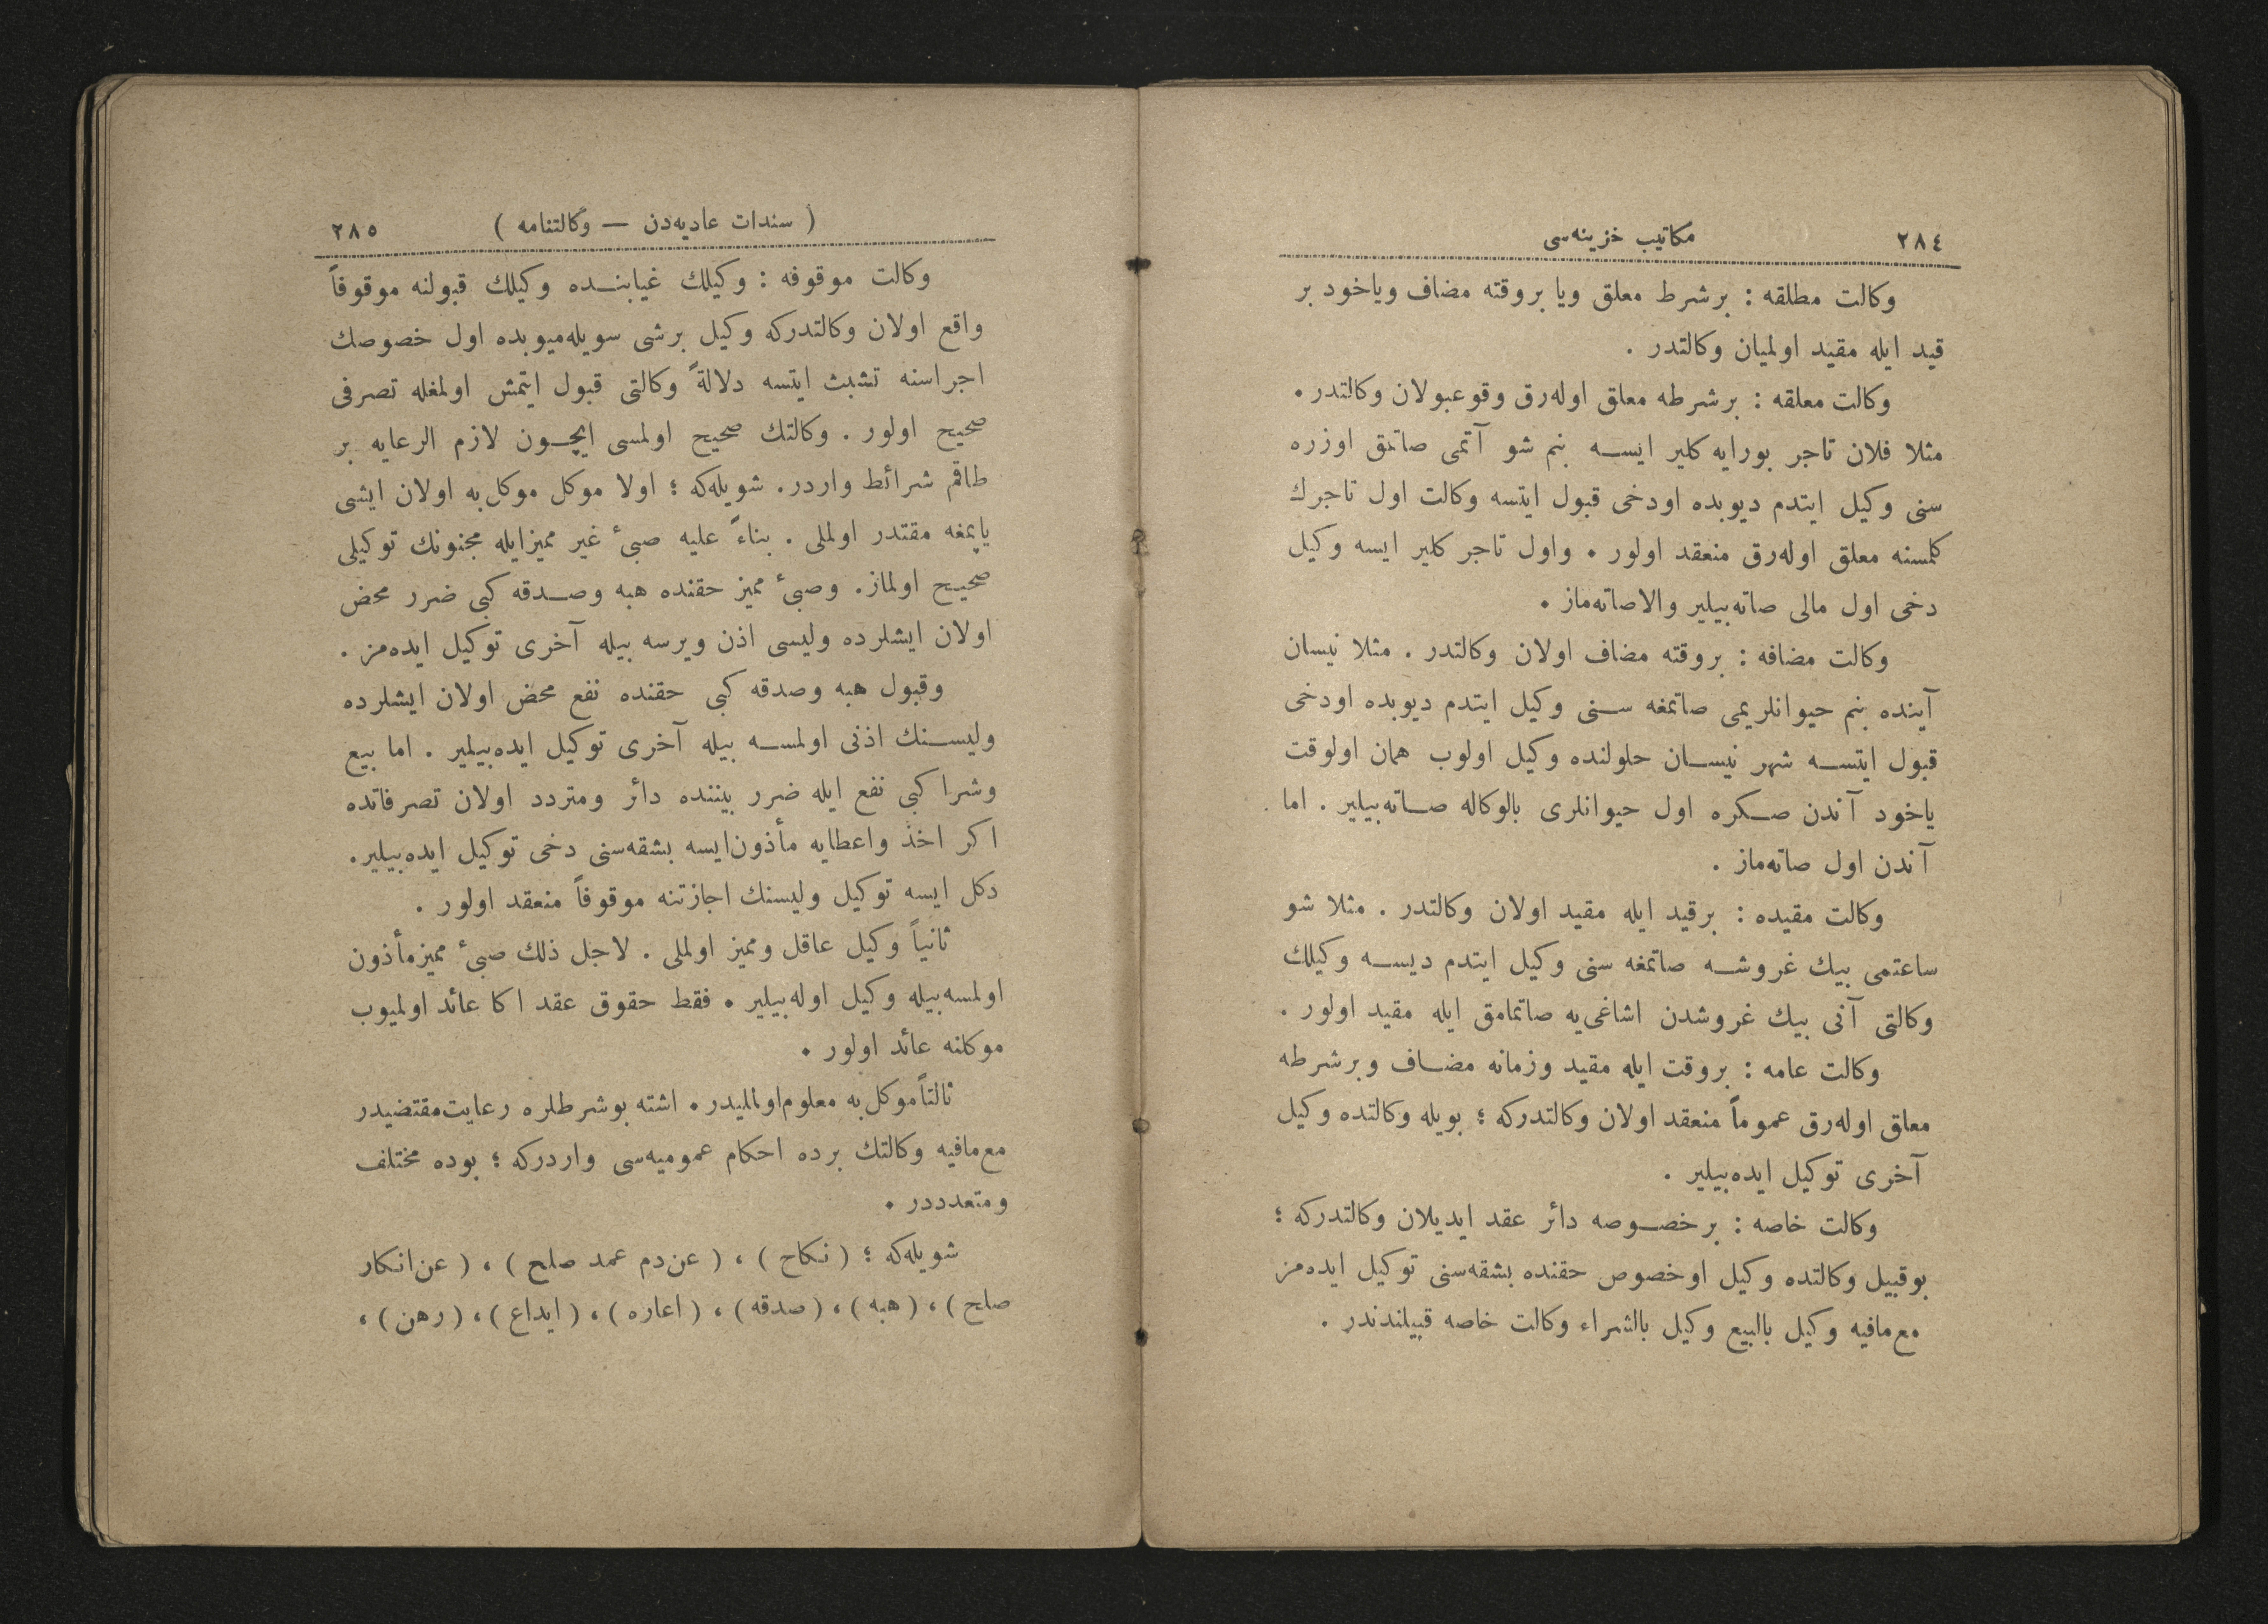 ٢٨٤ مكاتيب خزينه‌سى
وكالت مطلقه : برشرط معلق ويا بروقته مضاف وياخود بر
قيد ايله مقيد اولميان وكالتدر .
وكالت معلقه : برشرطه معلق اوله‌رق وقوعبولان وكالتدر .
مثلا فلان تاجر بورايه كلير ايسه بنم شو آتمى صاتمق اوزره
سنى وكيل ايتدم ديوبده اودخى قبول ايتسه وكالت اول تاجرك
كلمسنه معلق اوله‌رق منعقد اولور . واول تاجر كلير ايسه وكيل
دخى اول مالى صاته‌بيلير والاصاته‌ماز .
وكالت مضافه : بروقته مضاف اولان وكالتدر . مثلا نيسان
آينده بنم حيوانلريمى صاتمغه سنى وكيل ايتدم ديوبده اودخى
قبول ايتسه شهر نيسان حلولنده وكيل اولوب همان اولوقت
ياخود آندن صكره اول حيوانلرى بالوكاله صاته‌بيلير . اما
آندن اول صاته‌ماز .
وكالت مقيده : برقيد ايله مقيد اولان وكالتدر . مثلا شو
ساعتمى بيك غروشه صاتمغه سنى وكيل ايتدم ديسه وكيلك
وكالتى آنى بيك غروشدن اشاغى‌يه صاتمامق ايله مقيد اولور .
وكالت عامه : بروقت ايله مقيد وزمانه مضاف وبرشرطه
معلق اوله‌رق عموماً منعقد اولان وكالتدركه ؛ بويله وكالتده وكيل
آخرى توكيل ايده‌بيلير .
وكالت خاصه : برخصوصه دائر عقد ايديلان وكالتدركه ؛
بوقبيل وكالتده وكيل اوخصوص حقنده بشقه‌سنى توكيل ايده‌مز
مع‌مافيه وكيل بالبيع وكيل بالشراء وكالت خاصه قبيلندندر .
( سندات عاديه‌دن — وكالتنامه ) ٢٨٥
وكالت موقوفه : وكيلك غيابنده وكيلك قبولنه موقوفاً
واقع اولان وكالتدركه وكيل برشى سويله‌ميوبده اول خصوصك
اجراسنه تشبث ايتسه دلالةً وكالتى قبول ايتمش اولمغله تصرفى
صحيح اولور . وكالتك صحيح اولمسى ايچون لازم الرعايه بر
طاقم شرائط واردر . شويله‌كه ؛ اولا موكل موكل‌به اولان ايشى
ياپمغه مقتدر اولملى . بناءً عليه صبىٔ غير مميزايله مجنونك توكيلى
صحيح اولماز . وصبىٔ مميز حقنده هبه وصدقه كبى ضرر محض
اولان ايشلرده وليسى اذن ويرسه بيله آخرى توكيل ايده‌مز .
وقبول هبه وصدقه كبى حقنده نفع محض اولان ايشلرده
وليسنك اذنى اولمسه بيله آخرى توكيل ايده‌بيلير . اما بيع
وشرا كبى نفع ايله ضرر بيننده دائر ومتردد اولان تصرفاتده
اكر اخذ واعطايه مأذون‌ايسه بشقه‌سنى دخى توكيل ايده‌بيلير .
دكل ايسه توكيل وليسنك اجازتنه موقوفاً منعقد اولور .
ثانياً وكيل عاقل ومميز اولملى . لاجل ذلك صبىٔ مميزمأذون
اولمسه‌بيله وكيل اوله‌بيلير . فقط حقوق عقد اكا عائد اولميوب
موكلنه عائد اولور .
ثالثاًموكل‌به معلوم‌اولمليدر . اشته بوشرطلره رعايت‌مقتضيدر
مع‌مافيه وكالتك برده احكام عموميه‌سى واردركه ؛ بوده مختلف
ومتعدددر .
شويله‌كه ؛ ( نكاح ) ، ( عن‌دم عمد صلح ) ، ( عن‌انكار
صلح ) ، ( هبه ) ، ( صدقه ) ، ( اعاره ) ، ( ايداع ) ، ( رهن ) ،